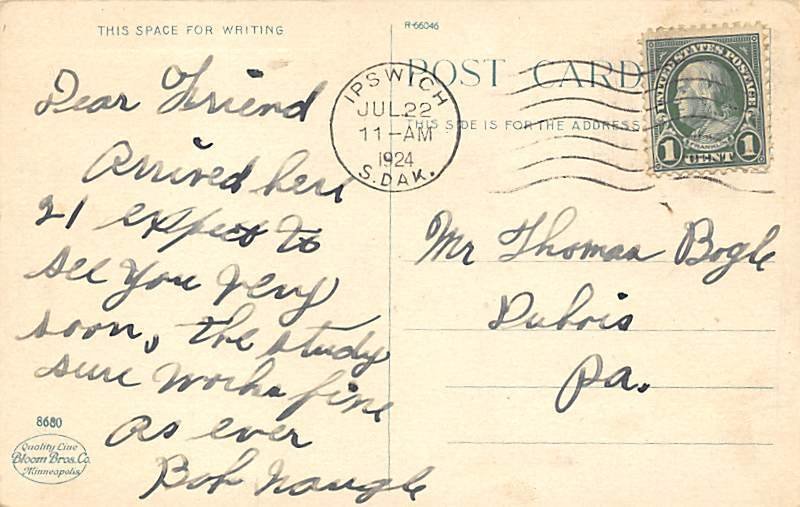 THIS SPACE FOR WRITING
R-66046
POST CARD
THIS SIDE IS FOR THE ADDRESS
IPSWICH
JUL 22
11-AM
1924
S. DAK.
UNITED STATES POSTAGE
FRANKLIN
1 CENT 1
Dear Friend
Arrived here
21 expect to
see you very
soon, the study
sure works fine
As ever
Bob Naugle
Mr Thomas Bogle
Dubois
Pa.
8680
Quality Line
Bloom Bros. Co.
Minneapolis